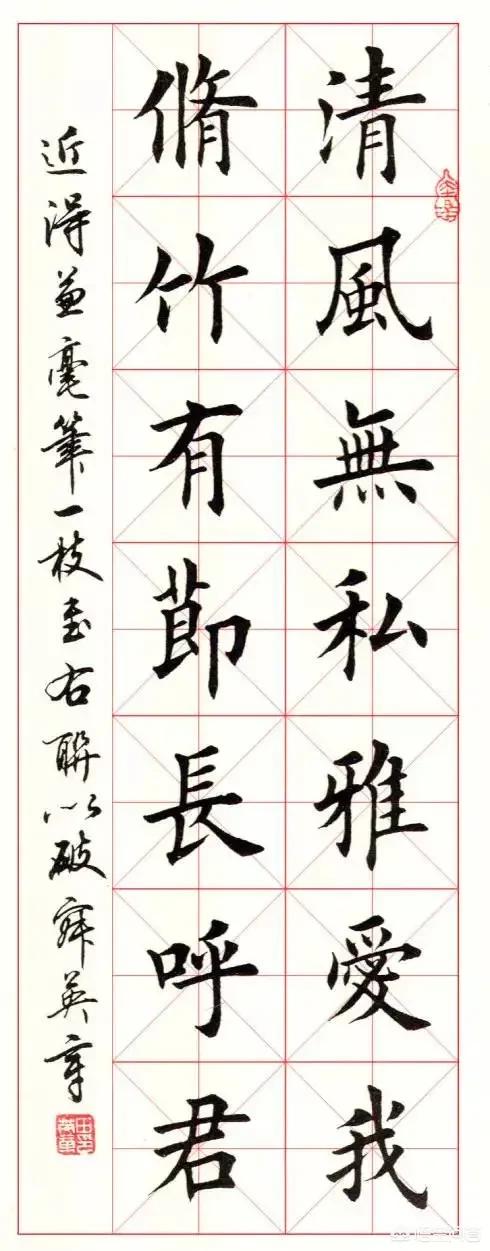 清風無私雅愛我
脩竹有節長呼君
近得兼毫筆一枝書右聯以破寂英章
田英章印